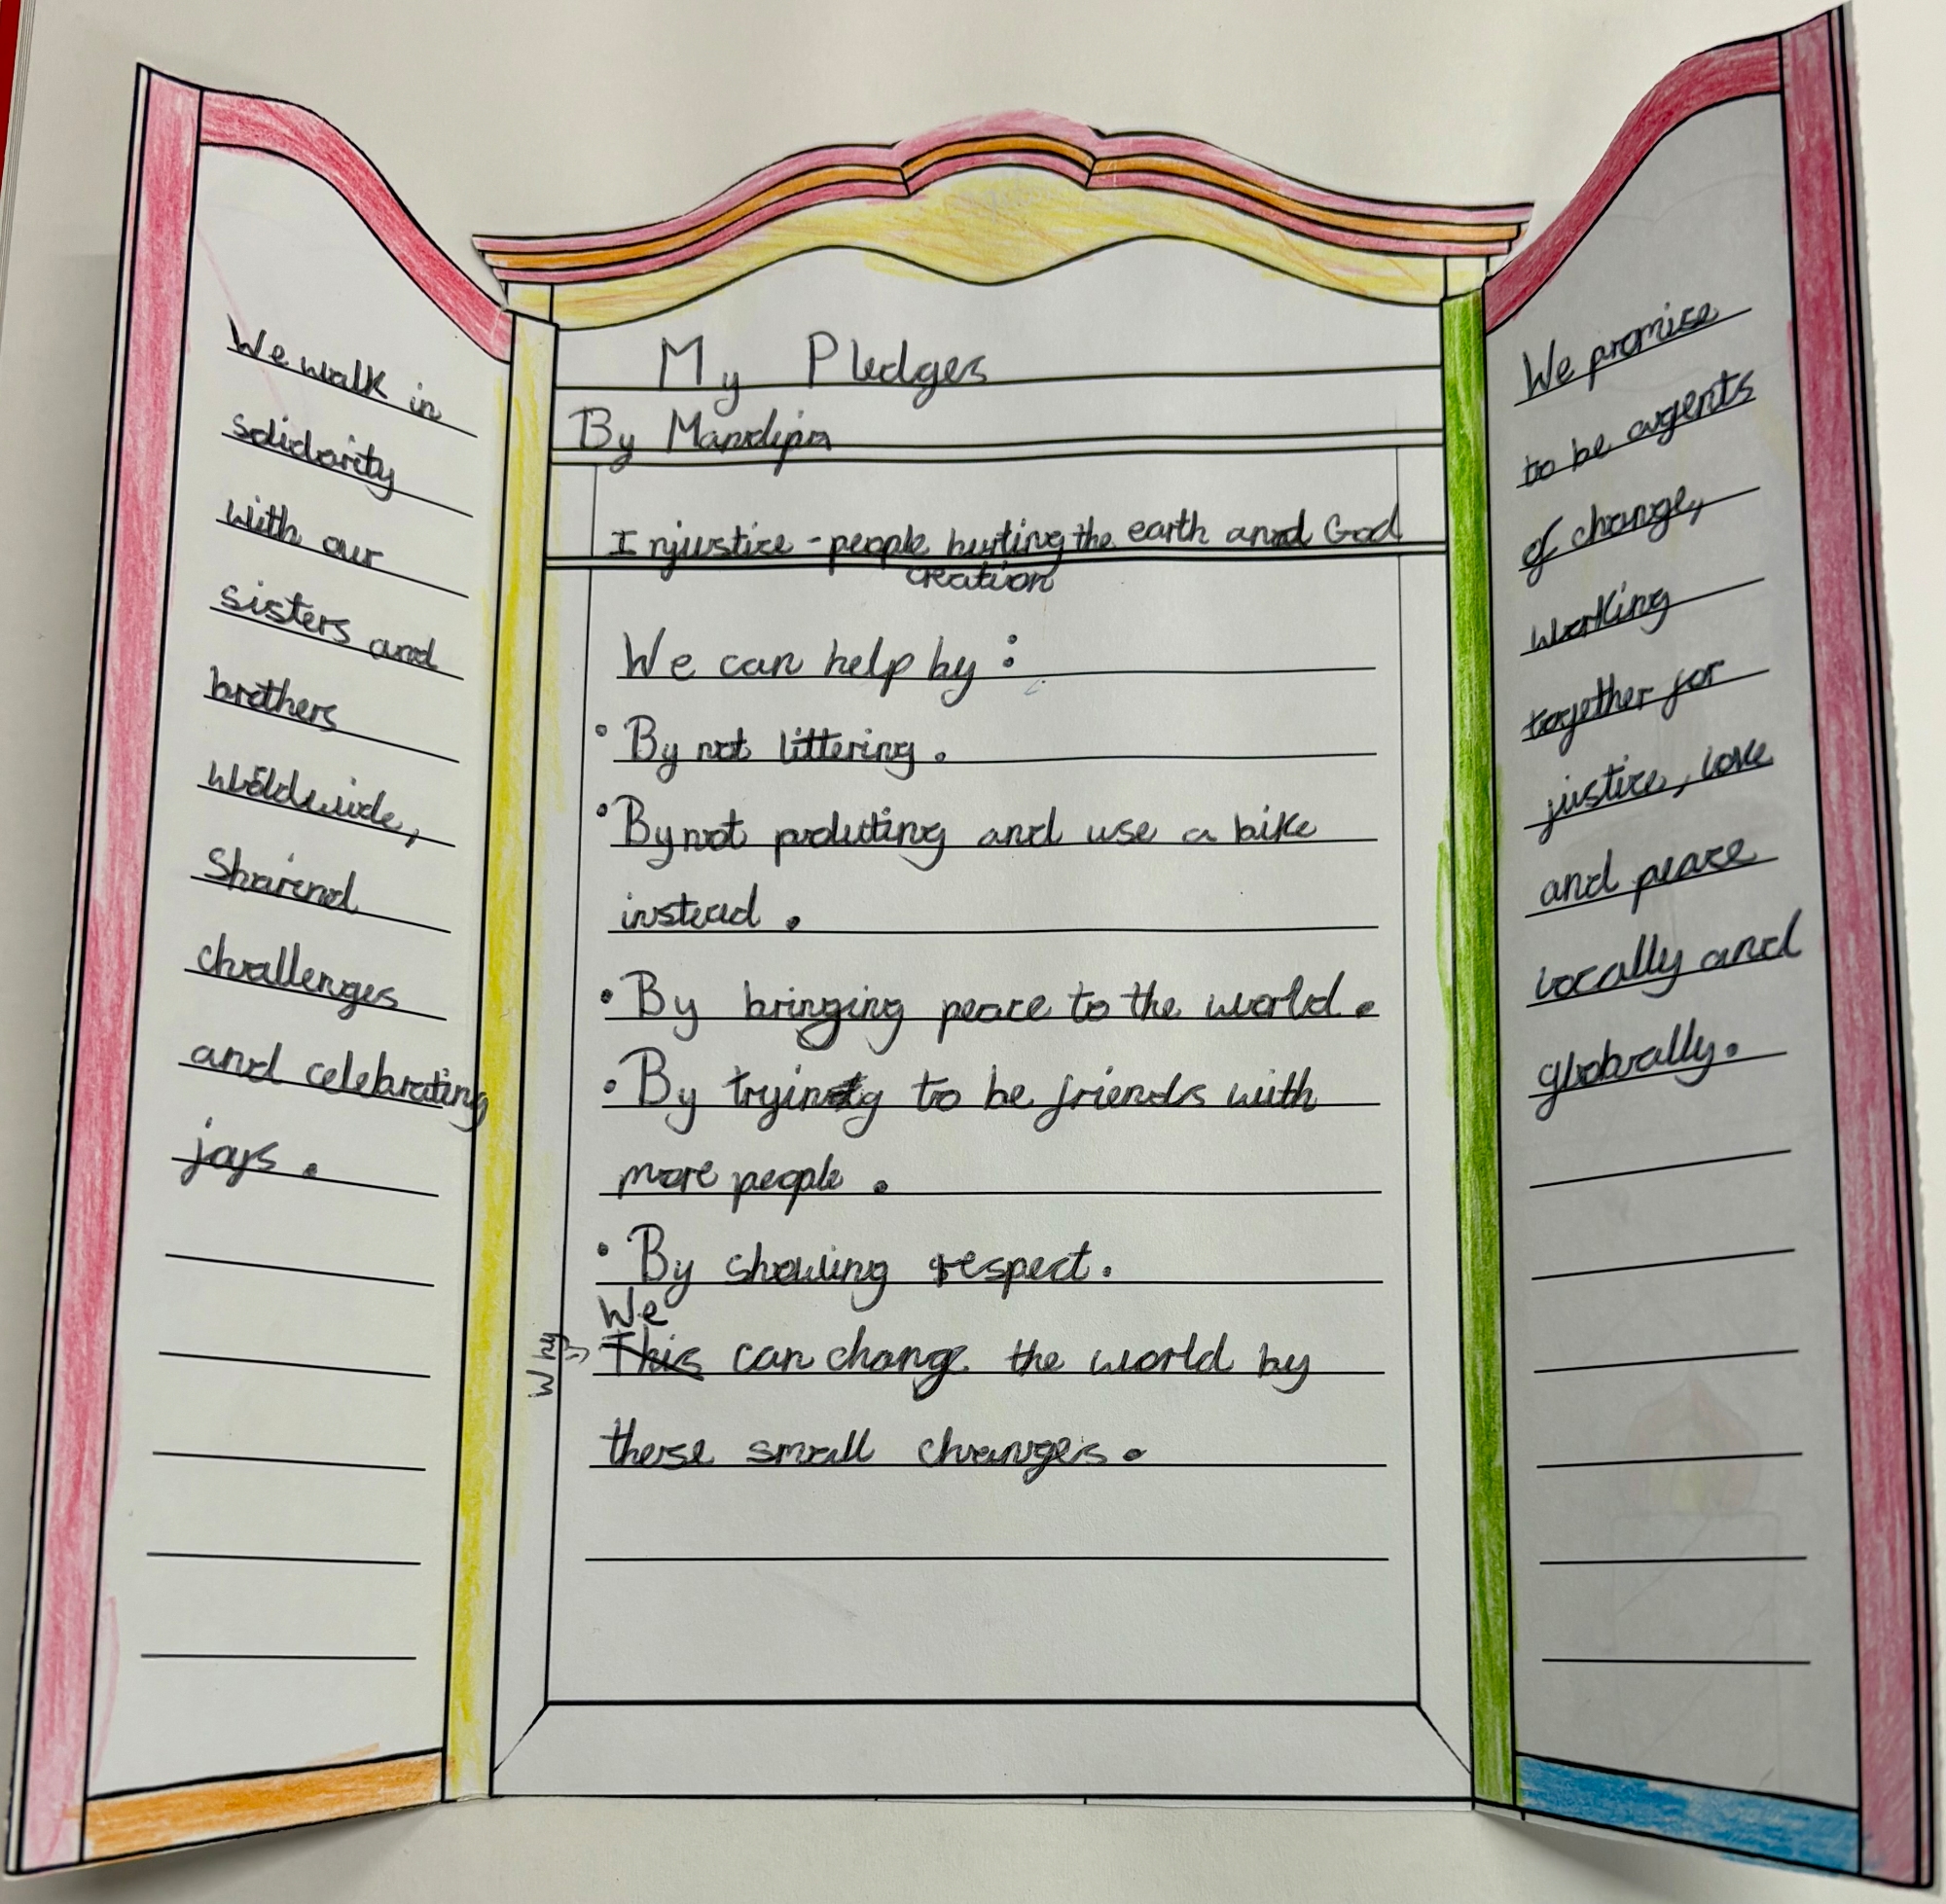 We walk in
solidarity
with our
sisters and
brothers
worldwide,
Sharind
challenges
and celebrating
joys.
My Pledges
By
Injustice - people hurting the earth and God
creation
We can help by:
• By not littering.
• By not poluting and use a bike
instead.
• By bringing peace to the world.
• By trying to be friends with
more people.
• By showing respect.
We
Why
This can change the world by
these small changes.
We promise
to be agents
of change,
working
together for
justice, love
and peace
locally and
globally.